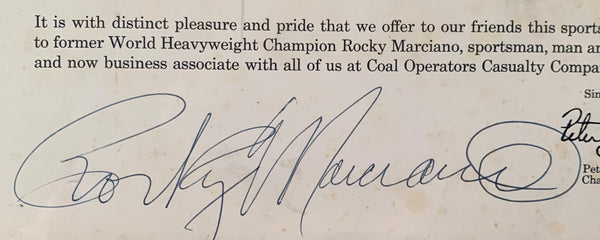 It is with distinct pleasure and pride that we offer to our friends this sports
to former World Heavyweight Champion Rocky Marciano, sportsman, man an
and now business associate with all of us at Coal Operators Casualty Compa
Sin
Rocky Marciano
Peter
Pet
Cha